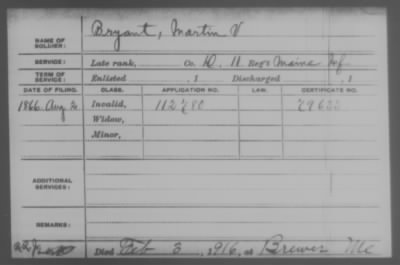 NAME OF SOLDIER: Bryant, Martin V
SERVICE: Late rank, Co. D, 11 Reg't Maine Inf
TERM OF SERVICE: Enlisted , 1 Discharged , 1
DATE OF FILING. CLASS. APPLICATION NO. LAW. CERTIFICATE NO.
1866 Aug Invalid, 112780
Widow,
Minor,
ADDITIONAL SERVICES:
REMARKS:
Died Feb 3, 1916, at Brewer Me